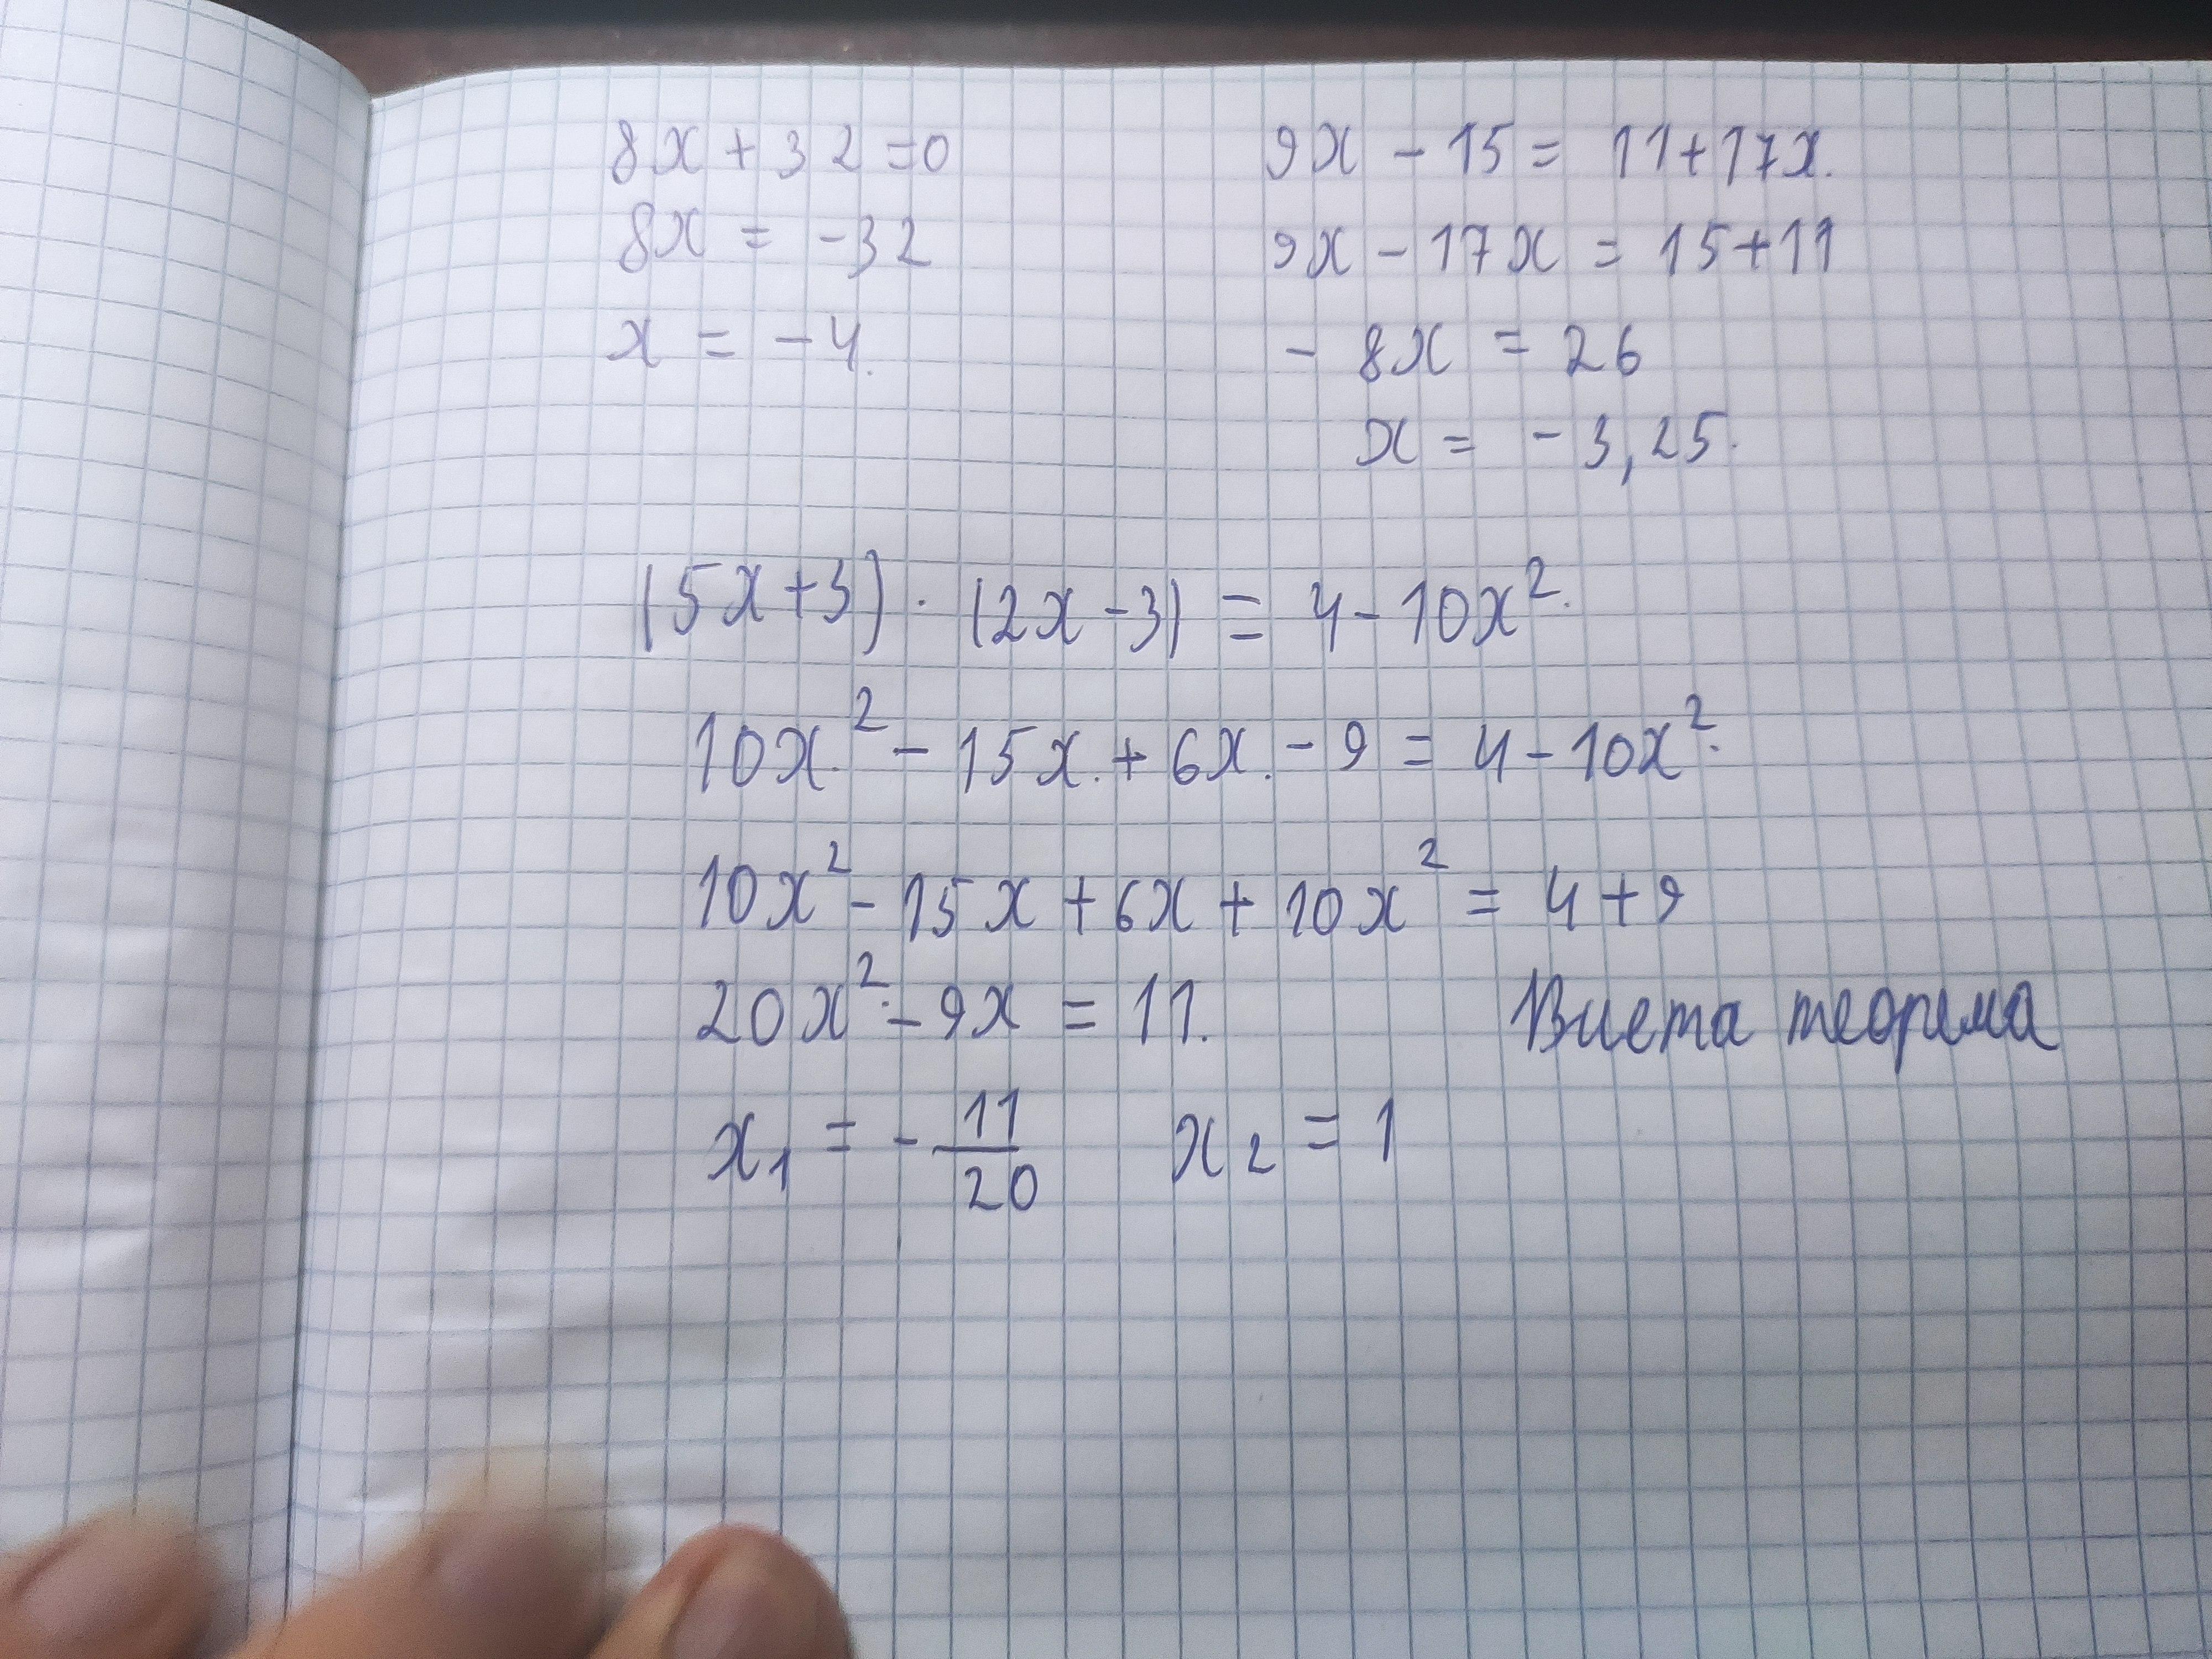 8x + 32 = 0
8x = -32
x = -4.
9x - 15 = 11 + 17x.
9x - 17x = 15 + 11
- 8x = 26
x = - 3,25.
(5x + 3) · (2x - 3) = 4 - 10x².
10x.² - 15x. + 6x. - 9 = 4 - 10x².
10x² - 15x + 6x + 10x² = 4 + 9
20x². - 9x = 11. Виета теорема
x₁ = - 11/20 x₂ = 1